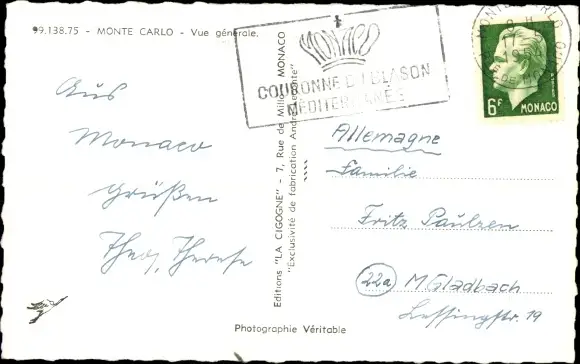 99.138.75 - MONTE CARLO - Vue générale.
MONACO
COURONNE DU BLASON
MÉDITERRANÉE
MONTE-CARLO
6F
MONACO
Aus
Monaco
grüßen
Theo, Therese
Editions "LA CIGOGNE" - 7, Rue de Millo - MONACO
"Exclusivité de fabrication André
Allemagne
Familie
Fritz Paulzen
22a M Gladbach
Lessingstr. 19
Photographie Véritable